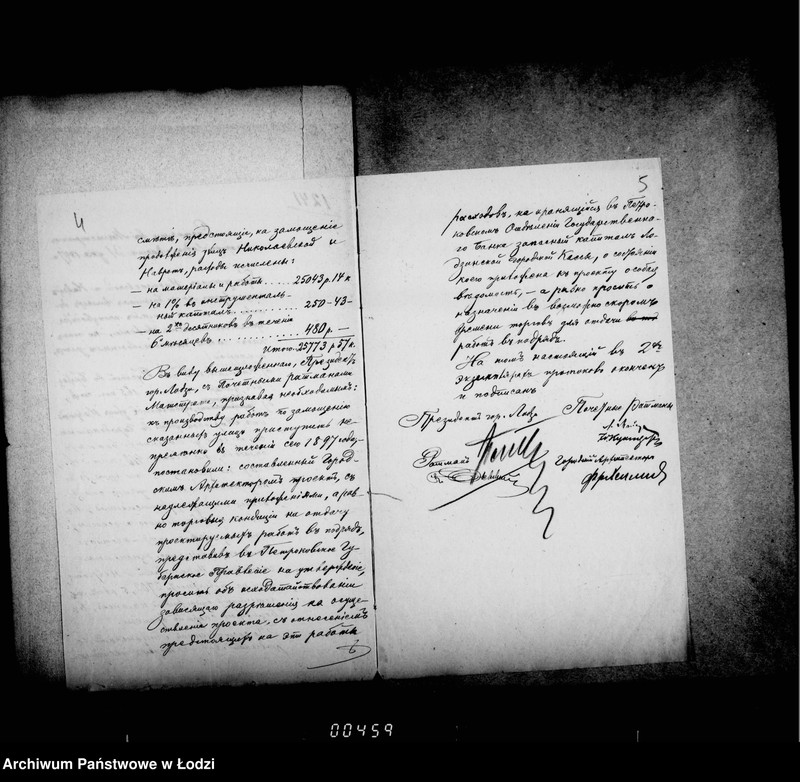 4
смѣтѣ, предстоящiе, на замощенiе
протяженiя улицъ Николаевской и
Навротъ, расходы исчислены:
— на матерiалы и работы .... 25043 р. 14 к
— на 1% въ инструменталь-
ный капиталъ ........ 250 – 43 –
— на 2хъ десятниковъ въ теченiи
6 мѣсяцевъ ........ 480 р. —
Итого. 25773 р 57 к.
Въ виду вышеизложеннаго, Президентъ
гор. Лодзи, съ Почетными ратманами
Магистрата, признавая необходимымъ:
къ производству работъ по замощенiю
сказанныхъ улицъ приступить не-
премѣнно въ теченiи сего 1897 года,
постановили: составленный Город-
скимъ Архитекторомъ проектъ, съ
надлежащими приложенiями, а рав-
но торговыя кондицiи на отдачу
проектируемыхъ работъ въ подрядъ,
представить въ Петроковское Гу-
бернское Правленiе на утвержденiе,
просить объ исходатайствованiи
зависящаго разрѣшенiя на осуще-
ствленiе проекта, съ отнесенiемъ
предстоящихъ на эти работы
5
расходовъ, на хранящiйся въ Петро-
ковскомъ Отдѣленiи Государственна-
го Банка запасный капиталъ Ло-
дзинской городской Кассы, о состоянiи
коего приложена къ проекту особая
вѣдомость, — а равно просить о
назначенiи въ возможно скоромъ
времени торговъ для отдачи
работъ въ подрядъ.
На томъ настоящiй въ 2хъ
экземплярахъ протоколъ оконченъ
и подписанъ
Президентъ гор. Лодзи
Почетные Ратманы
Ратманъ
Городской Архитекторъ
00459
Archiwum Państwowe w Łodzi